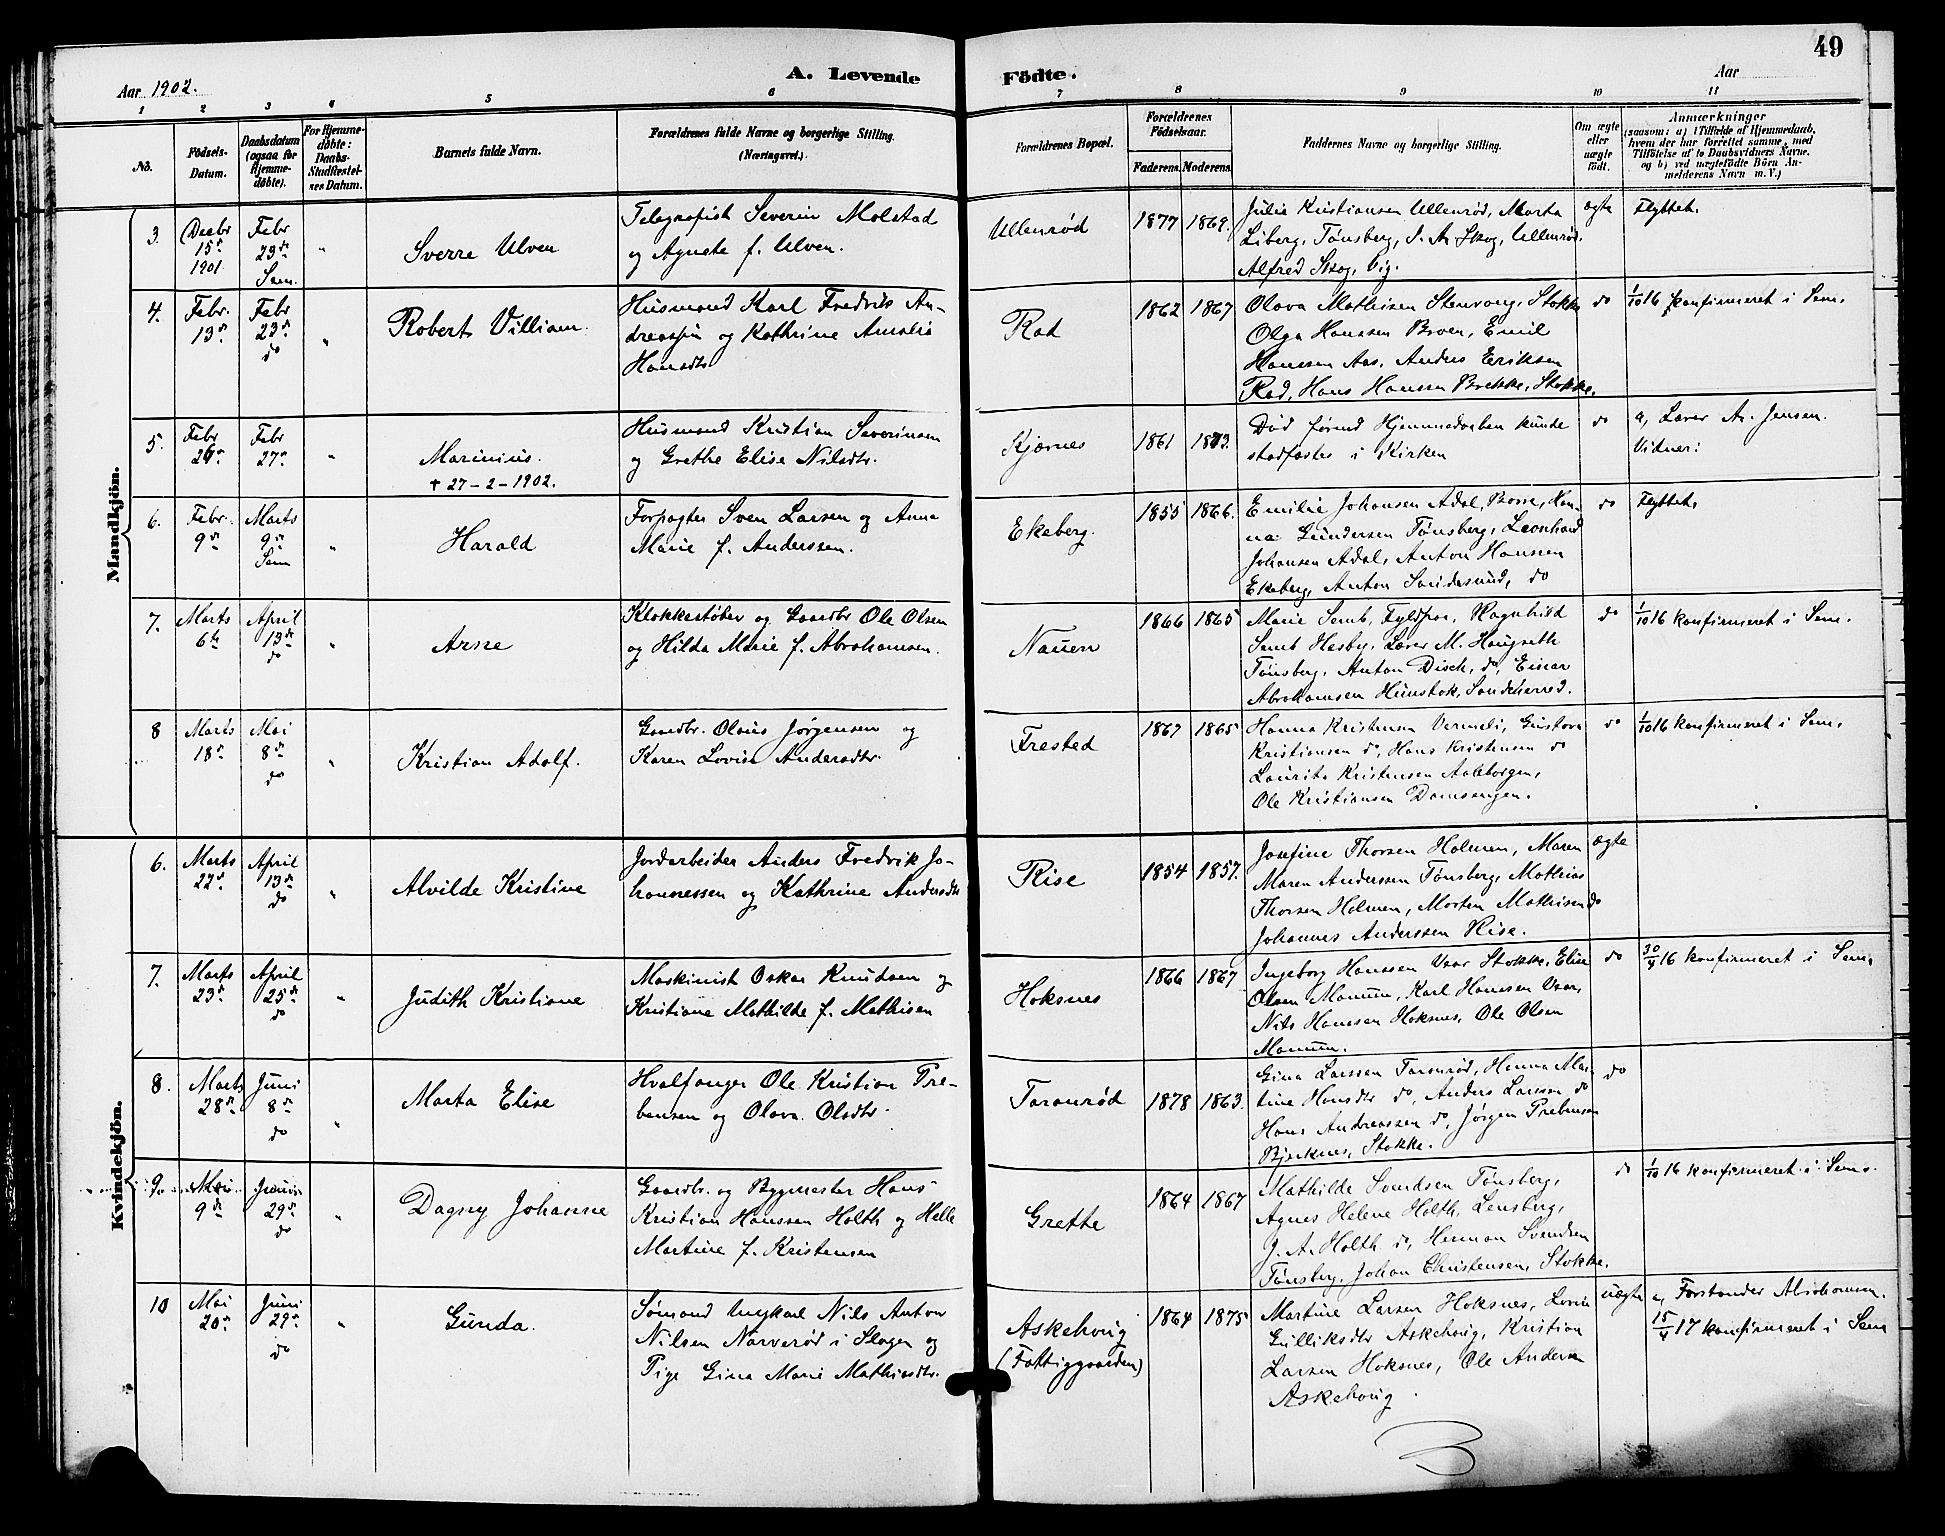 49
Aar 1902.
A. Levende Födte.
Aar
1 2 3 4 5 6 7 8 9 10 11
No.
Födsels-Datum.
Daabsdatum (ogsaa for Hjemmedöbte).
For Hjemmedöbte: Daabs-Stadfæstelses Datum.
Barnets fulde Navn.
Forældrenes fulde Navne og borgerlige Stilling. (Næringsvei.)
Forældrenes Bopæl.
Forældrenes Födselsaar.
Faderens. Moderens.
Faddernes Navne og borgerlige Stilling.
Om ægte eller uægte födt.
Anmærkninger
(saasom: a) i Tilfælde af Hjemmedaab, hvem der har forrettet samme, med Tilföielse af to Daabsvidners Navne. og b) ved uægtefödte Börn Anmelderens Navn m. V.)
Mandkjön.
3. Decbr 15de 1901 Febr 23de Sem. "
Sverre Ulven
Telegrafist Severin Molstad
og Agnete f. Ulven.
Ullenrød 1877 1869.
Julie Kristiansen Ullenrød, Marta
Liberg, Tønsberg, J. A. Skog, Ullenrød.
Alfred Skog,
ægte Flyttet.
4. Febr. 13de Febr 23de do "
Robert Villiam.
Husmand Karl Fredrik An-
dreassen og Kathrine Amalie
Hansdtr
Rad 1862 1867
Olava Mathisen Stenvang, Stokke
Olga Hanssen Broen, Emil
Hanssen Aas, Anders Eriksen
Rad, Hans Hanssen Brekke, Stokke.
do 1/10 16 konfirmeret i Sem.
5. Febr 26de Febr 27de "
Marinius.
+ 27-2-1902.
Husmand Kristian Severinsen
og Grethe Elise Nilsdtr.
Kjærnes 1861 1873.
Død førend Hjemmedaaben kunde
stadfæstes i Kirken
do a, Lærer A. Jensen.
Vidner:
6. Febr. 9de Marts 9de Sem "
Harald
Forpagter Sven Larsen og Anna
Marie f. Anderssen.
Ekeberg. 1855 1866.
Emilie Johansen Adal, Borre, Han-
na Gundersen Tønsberg, Leonhard
Johansen Adal, Anton Hanssen
Ekeberg, Anton Sandesund, do
do Flyttet.
7. Marts 6te April 13de do "
Arne
Klokkestøber og Gaardbr Ole Olsen
og Hilda Marie f. Abrahamsen.
Nauen 1866 1865
Marie Semb, Fyldpaa, Ragnhild
Semb Hesby, Lærer M. Haugseth
Tønsberg, Anton Disch, do, Einar
Abrahamsen Hunstok, Sandeherred.
do 1/10 16 konfirmeret i Sem.
8 Marts 18de Mai 8de do "
Kristian Adolf.
Gaardbr. Olaus Jørgensen og
Karen Lovise Andersdtr.
Frested 1867 1865
Hanna Kristensen Vermeli, Gustava
Kristiansen do, Hans Kristensen do
Laurits Kristensen Aaleborgen,
Ole Kristiansen Damsengen.
do 1/10 16 konfirmeret i Sem.
Kvindekjön.
6. Marts 22de April 13de do "
Alvilde Kristine
Jordarbeider Anders Fredrik Jo-
hannessen og Kathrine Andersdtr
Rise 1854 1857.
Josefine Thorsen Holmen, Maren
Maren Anderssen Tønsberg, Mathias
Thorsen Holmen, Morten Mathisen do
Johannes Anderssen Rise.
ægte
7. Marts 23de April 25de do "
Judith Kristiane
Maskinist Oskar Knudsen og
Kristiane Mathilde f. Mathisen
Hoksnes 1866 1867
Ingeborg Hanssen Vaar Stokke, Elise
Olsen Manum, Karl Hanssen Vaar,
Nils Hanssen Hoksnes, Ole Olsen
Manum.
do 30/4 16 konfirmeret i Sem.
8. Marts 28de Juni 8de do "
Marta Elise
Hvalfanger Ole Kristian Pre-
bensen og Olava Olsdtr.
Taranrød 1878 1863.
Gina Larssen Taranrød, Hanna Mar-
tine Hansdtr do, Anders Larssen do
Hans Andreassen do, Jørgen Prebensen
Bjerknes, Stokke.
do
9. Mai 9de Juni 29de do "
Dagny Johanne
Gaardbr. og Bygmester Hans
Kristian Hanssen Holth og Helle
Martine f. Kristensen
Grette 1864 1867
Mathilde Svendsen Tønsberg,
Agnes Helene Holth, Lensberg,
J. A. Holth do, Herman Svendsen
Tønsberg, Johan Christensen, Stokke.
do 1/10 16 konfirmeret i Sem.
10 Mai 20de Juni 29de do "
Gunda.
Sømand Ungkarl Nils Anton
Nilsen Narverød i Slagen og
Pige Gina Marie Mathiasdtr.
Askehoug
(Fattiggaarden) 1864 1875
Martine Larsen Hoksnes, Lovise
Gulliksdtr Askehoug, Kristian
Larsen Hoksnes, Ole Andersen
Askehoug
uægte a, Forstander Abrahamsen.
15/4 17 konfirmeret i Sem